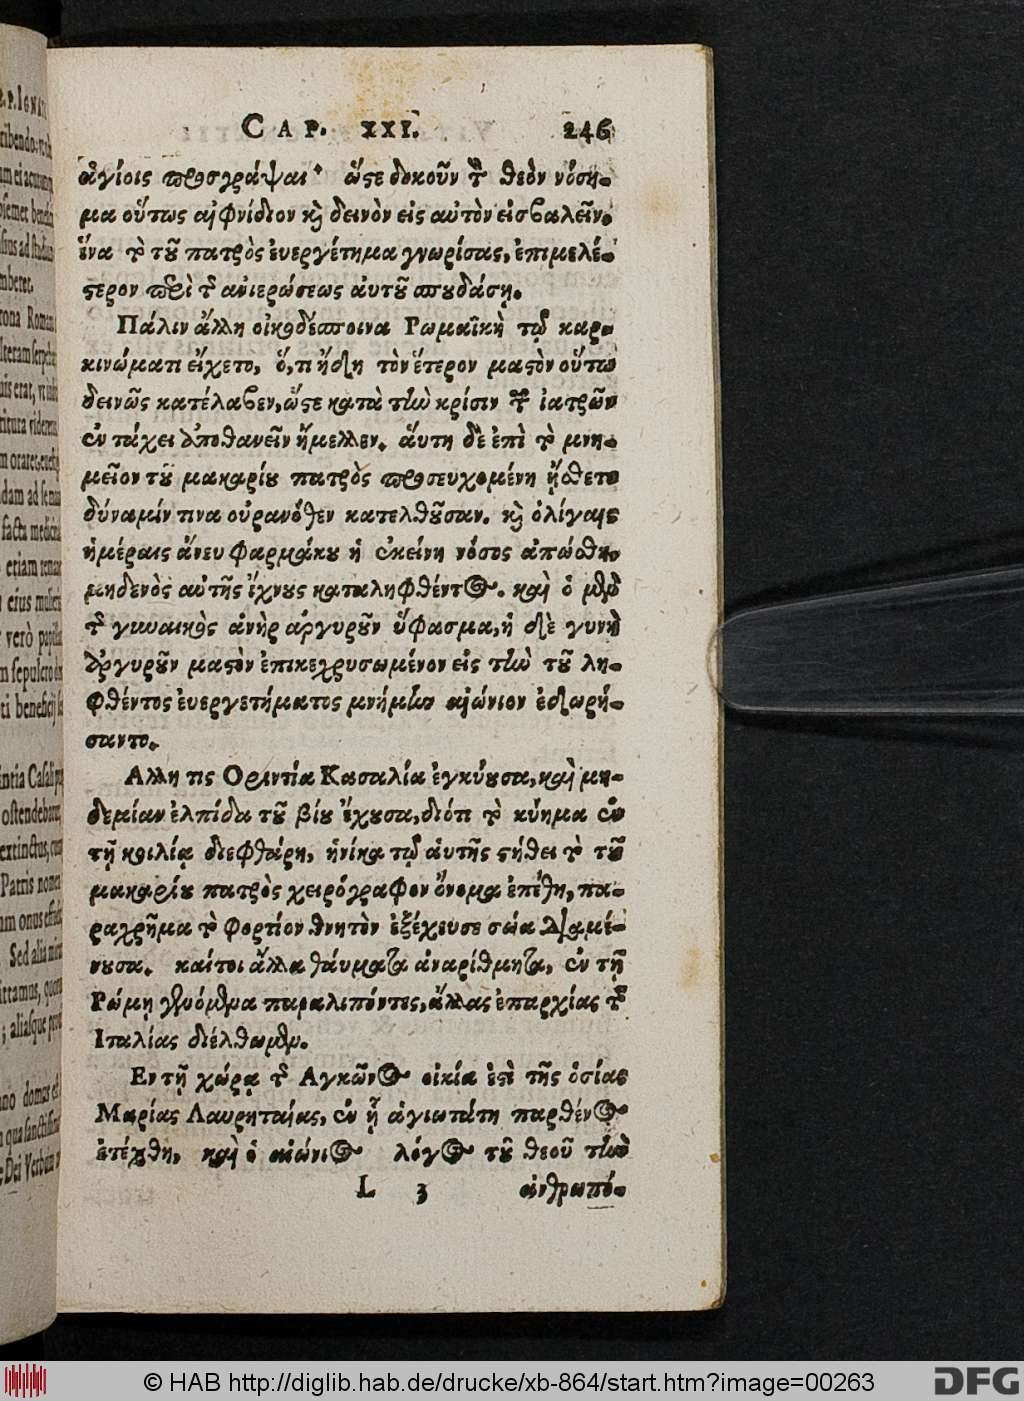 CAP. XXI. 246
ἁγίοις προσγράψαι· ὥστε δοκοῦν τὸν θεὸν νόση-
μα οὕτως αἰφνίδιον καὶ δεινὸν εἰς αὐτὸν εἰσβαλεῖν,
ἵνα τὸ τοῦ πατρὸς ἐυεργέτημα γνωρίσας, ἐπιμελέ-
στερον περὶ τῆς ἀνιερώσεως ἀυτοῦ σπουδάσῃ.
Πάλιν ἄλλη οἰκοδέσποινα Ρωμαϊκὴ τῷ καρ-
κινώματι εἴχετο, ὅ,τι ἤδη τὸν ἕτερον μαστὸν οὕτω
δεινῶς κατέλαβεν, ὥστε κατὰ τὴν κρίσιν τῶν ἰατρῶν
ἐν τάχει ἀποθανεῖν ἤμελλεν. ἅυτη δὲ ἐπὶ τὸ μνη-
μεῖον τοῦ μακαρίου πατρὸς προσευχομένη ᾔσθετο
δύναμίν τινα οὐρανόθεν κατελθοῦσαν. καὶ ὀλίγαις
ἡμέραις ἄνευ φαρμάκου ἡ ἐκείνη νόσος ἀπώσθη,
μηδενὸς αὐτῆς ἴχνους καταληφθέντος. καὶ ὁ μὲν
τῆς γυναικὸς ἀνὴρ ἀργυροῦν ὕφασμα, ἡ δὲ γυνὴ
ἀργυροῦν μαστὸν ἐπικεχρυσωμένον εἰς τὴν τοῦ λη-
φθέντος ἐυεργετήματος μνήμην αἰώνιον ἐδωρή-
σαντο.
Αλλη τις Ορωντία Κασαλία ἐγκύουσα, καὶ μη-
δεμίαν ἐλπίδα τοῦ βίου ἔχουσα, διότι τὸ κύημα ἐν
τῇ κοιλίᾳ διεφθάρη, ἡνίκα τῷ ἀυτῆς στήθει τὸ τοῦ
μακαρίου πατρὸς χειρόγραφον ὄνομα ἐπέθη, πα-
ραχρῆμα τὸ φορτίον θνητὸν ἐξέχευσε σώα διαμέ-
νουσα. καίτοι ἄλλα θάυματα ἀναρίθμητα, ἐν τῇ
Ρώμῃ γενόμενα παραλιπόντες, ἄλλας ἐπαρχίας τῆς
Ιταλίας διέλθωμεν.
Εν τῇ χώρᾳ τῆς Αγκῶνος οἰκία ἐστὶ τῆς ὁσίας
Μαρίας Λαυρηταίας, ἐν ᾗ ἁγιωτάτη παρθένος
ἐτέχθη, καὶ ὁ αἰώνιος λόγος τοῦ θεοῦ τὴν
L 3 ἀνθρωπό-
© HAB http://diglib.hab.de/drucke/xb-864/start.htm?image=00263
DFG